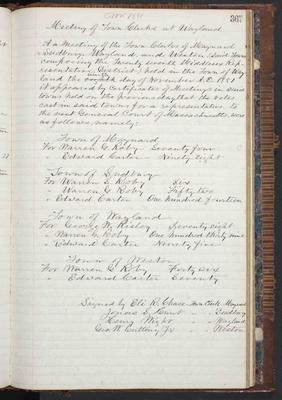 367
Meeting of Town Clerks at Wayland
At a Meeting of the Town Clerks of Maynard
Sudbury, Wayland and Weston, (said Towns
composing the Twenty seventh Middlesex Rep-
resentative District) held in the Town of Way
land the day of November A.D. 1881
it appeared by Certificates of Meetings in said
towns held on the previous day that the votes
cast in said towns for a representative to
the next General Court of Massachusetts, were
as follows, namely:
Town of Maynard
For Warren G. Roby Seventy four
" Edward Carter Ninety eight
Town of Sudbury
For Warren L. Roby six
" Warren G. Roby Fifty two
" Edward Carter One Hundred fourteen
Town of Wayland
For George W. Seventy eight
" Warren G. Roby One Hundred thirty nine
" Edward Carter Ninety five
Town of Weston
For Warren G. Roby Forty six
" Edward Carter Seventy
Signed by Eli R. Chase Town Clerk Maynard
Jonas S. Hunt " " Sudbury
Henry Wight " " Wayland
Geo. W. Cutting Jr " " Weston